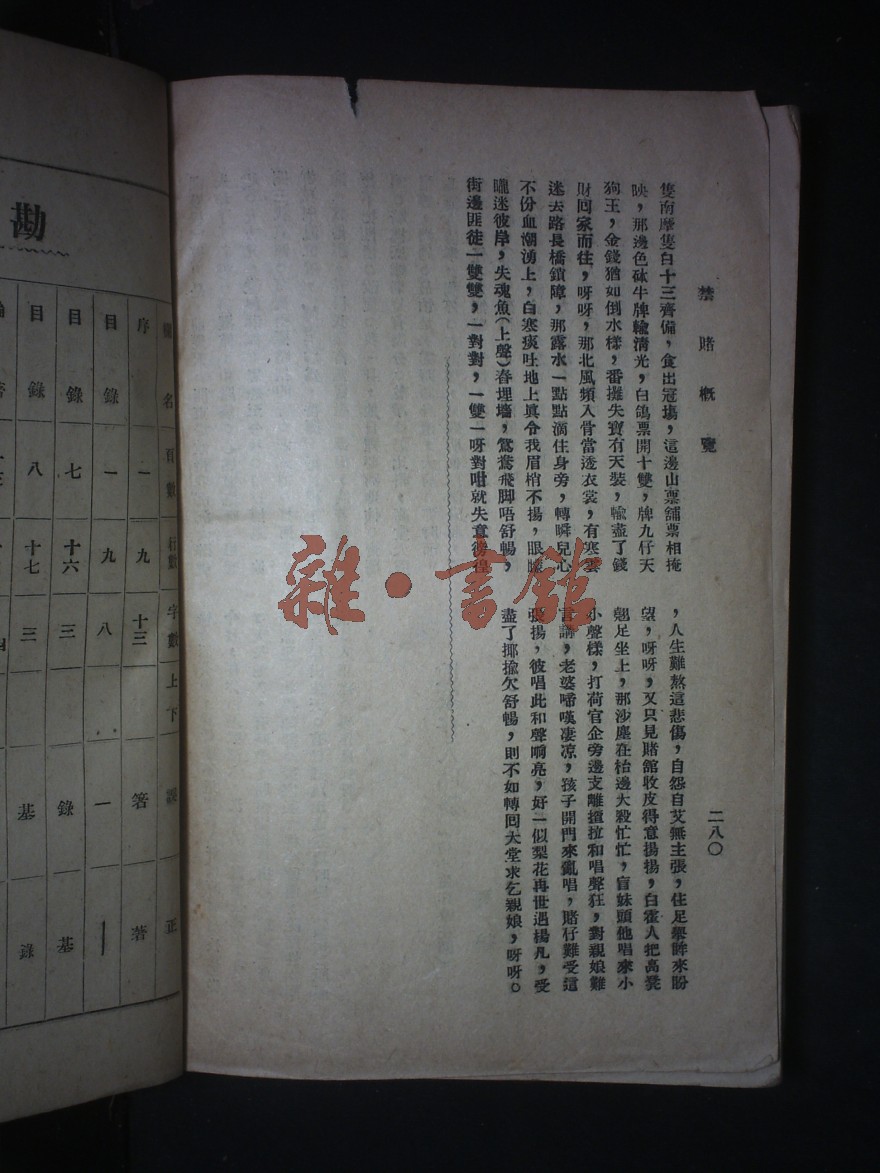 禁賭概覽
二八〇
隻南摩隻白十三齊備，食出冠塲，這邊山票舖票相掩
映，那邊色砵牛牌輸清光，白鴿票開十雙，牌九仔天
狗王，金錢猶如倒水樣，番攤失寶有天裝，輸盡了錢
財回家而往，呀呀，那北風頻入骨當透衣裳，有寒雲
迷去路長橋鎖障，那露水一點點滴住身旁，轉瞬兒心
不份血潮湧上，白寒痰吐地上眞令我眉梢不揚，眼矇
矓迷彼岸，失魂魚（上聲）舂埋墻，鴛鴦飛脚唔舒暢，
街邊匪徒一雙雙，一對對，一雙一呀對咁就失意徬徨
，人生難熬這悲傷，自怨自艾無主張，住足舉眸來盼
望，呀呀，又只見賭舘收皮得意揚揚，白霍人把高凳
翹足坐上，那沙塵在枱邊大殺忙忙，盲妹頭他唱來小
小聲樣，打荷官企旁邊支離擸拉和唱聲狂，對親娘難
言講，老婆啼嘆凄凉，孩子開門來亂唱，賭仔難受這
張揚，彼唱此和聲响亮，好一似梨花再世遇楊凡，受
盡了揶揄欠舒暢，則不如轉回大堂求乞親娘，呀呀。
雜·書館
勘
名 頁數 行數 字數 上下 誤 正
序 一 九 十三 箸 著
目錄 一 九 八 一 ｜
目錄 七 十六 三 錄 基
目錄 八 十七 三 基 錄